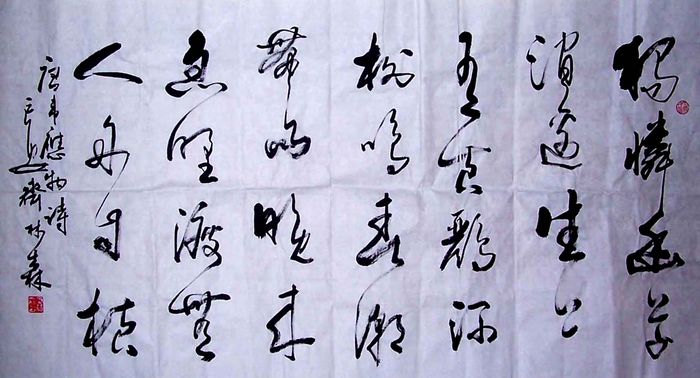 独憐幽草
涧边生上
有黄鹂深
树鸣春潮
带雨晚来
急野渡無
人舟自横
唐韦應物诗
林森